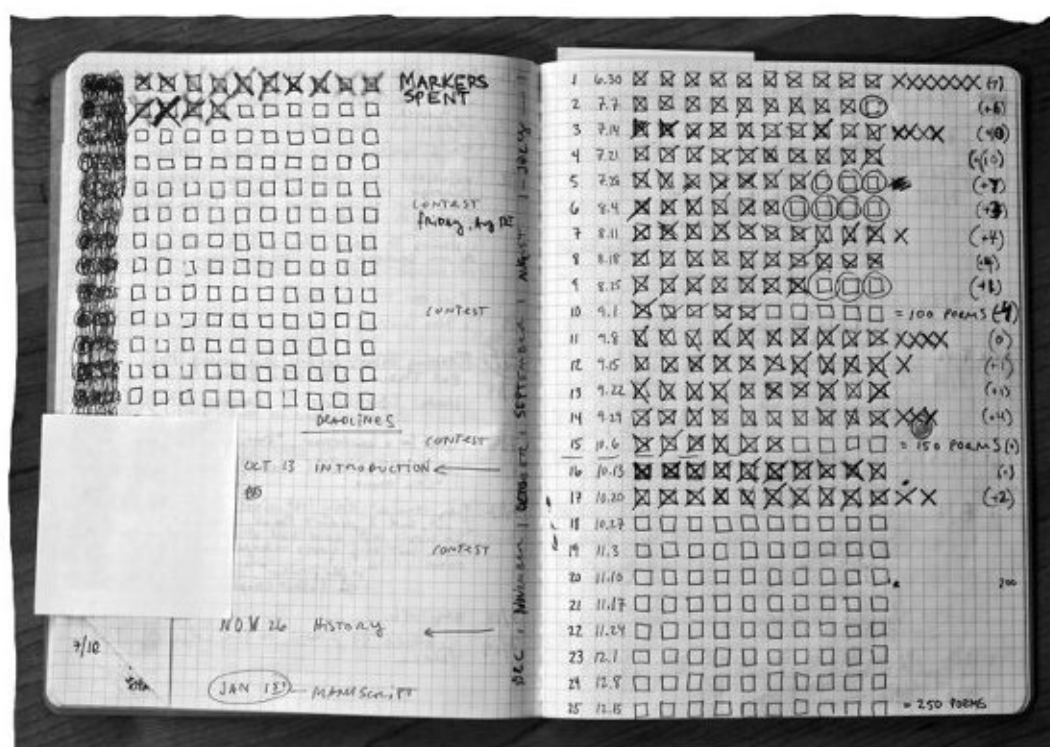 MARKERS
SPENT
CONTEST
friday, Aug 1st
CONTEST
DEADLINES
CONTEST
OCT 13 INTRODUCTION
CONTEST
NOV 26 HISTORY
7/10
JAN 1ST MANUSCRIPT
DEC | NOVEMBER | OCTOBER | SEPTEMBER | AUGUST | JULY
1 6.30 (+7)
2 7.7 (+6)
3 7.14
4 7.21 (+10)
5 7.28 (+7)
6 8.4 (+3)
7 8.11 (+4)
8 8.18 (+4)
9 8.25 (+1)
10 9.1 = 100 POEMS (-4)
11 9.8 (0)
12 9.15 (+1)
13 9.22 (+1)
14 9.29 (+4)
15 10.6 = 150 POEMS (0)
16 10.13 (0)
17 10.20 (+2)
18 10.27
19 11.3
20 11.10 200
21 11.17
22 11.24
23 12.1
24 12.8
25 12.15 = 250 POEMS